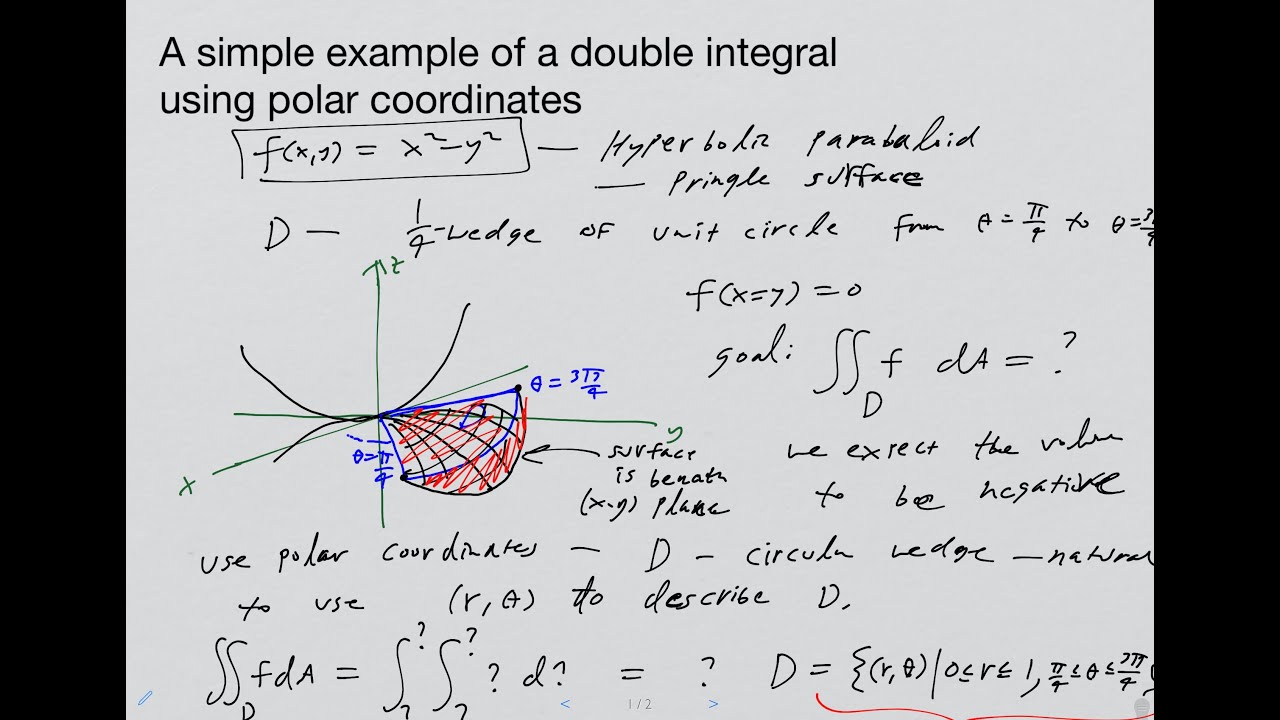 A simple example of a double integral
using polar coordinates
f(x,y) = x²-y² — Hyperbolic parabaloid
— pringle surface
D — 1/4-wedge of unit circle from θ=π/4 to θ=3π/4
z
f(x=y) = 0
goal: ∬_D f dA = ?
θ = 3π/4
y
θ=π/4
x
surface
is benath
(x-y) plane
we expect the value
to be negative
use polar coordinates — D — circular wedge — natural
to use (r, θ) to describe D.
∬_D f dA = ∫_?^? ∫_?^? ? d? = ? D = {(r, θ) | 0≤r≤1, π/4≤θ≤3π/4}
< 1 / 2 >